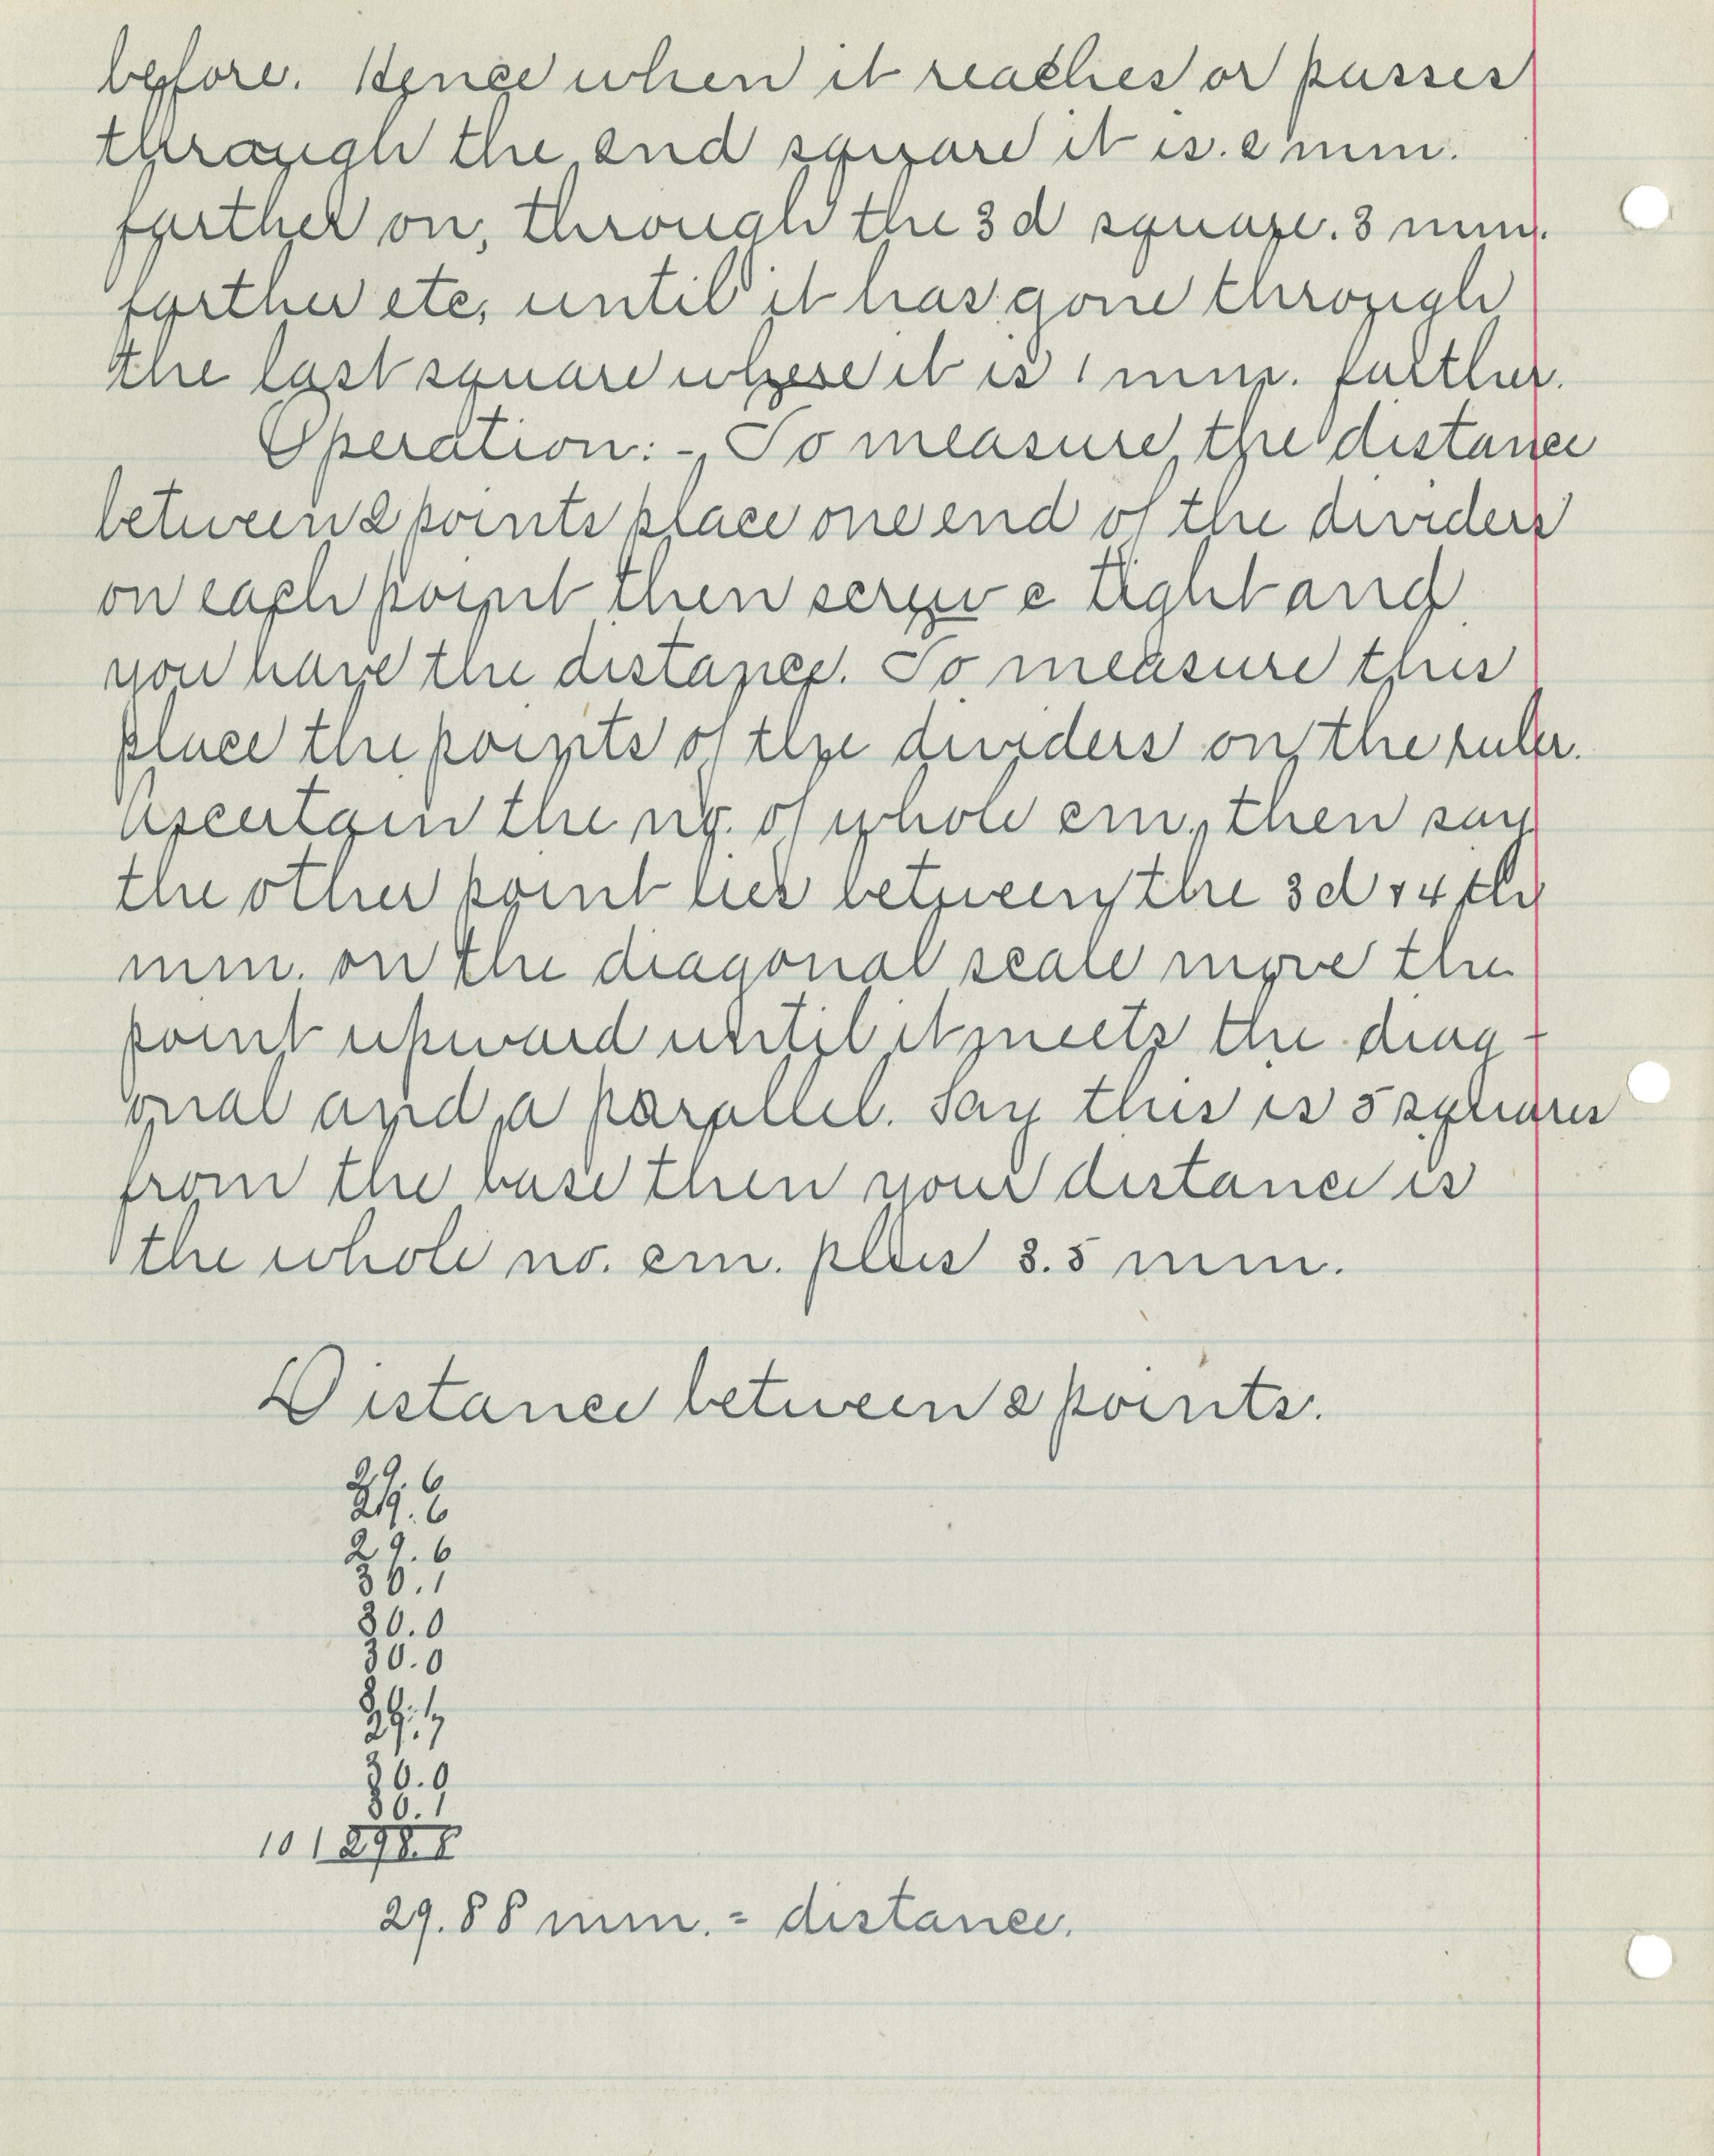 before. Hence when it reaches or passes
through the 2nd square it is .2 mm.
farther on, through the 3d square .3 mm.
farther etc, until it has gone through
the last square where it is 1 mm. farther.
Operation:- To measure the distance
between 2 points place one end of the dividers
on each point then screw c tight and
you have the distance. To measure this
place the points of the dividers on the ruler.
Ascertain the no. of whole cm., then say
the other point lies between the 3d & 4th
mm. on the diagonal scale move the
point upward until it meets the diag-
onal and a parallel. Say this is 5 squares
from the base then your distance is
the whole no. cm. plus 3.5 mm.
Distance between 2 points.
29.6
29.6
29.6
30.1
30.0
30.0
30.1
29.7
30.0
30.1
10 | 298.8
29.88 mm. = distance.